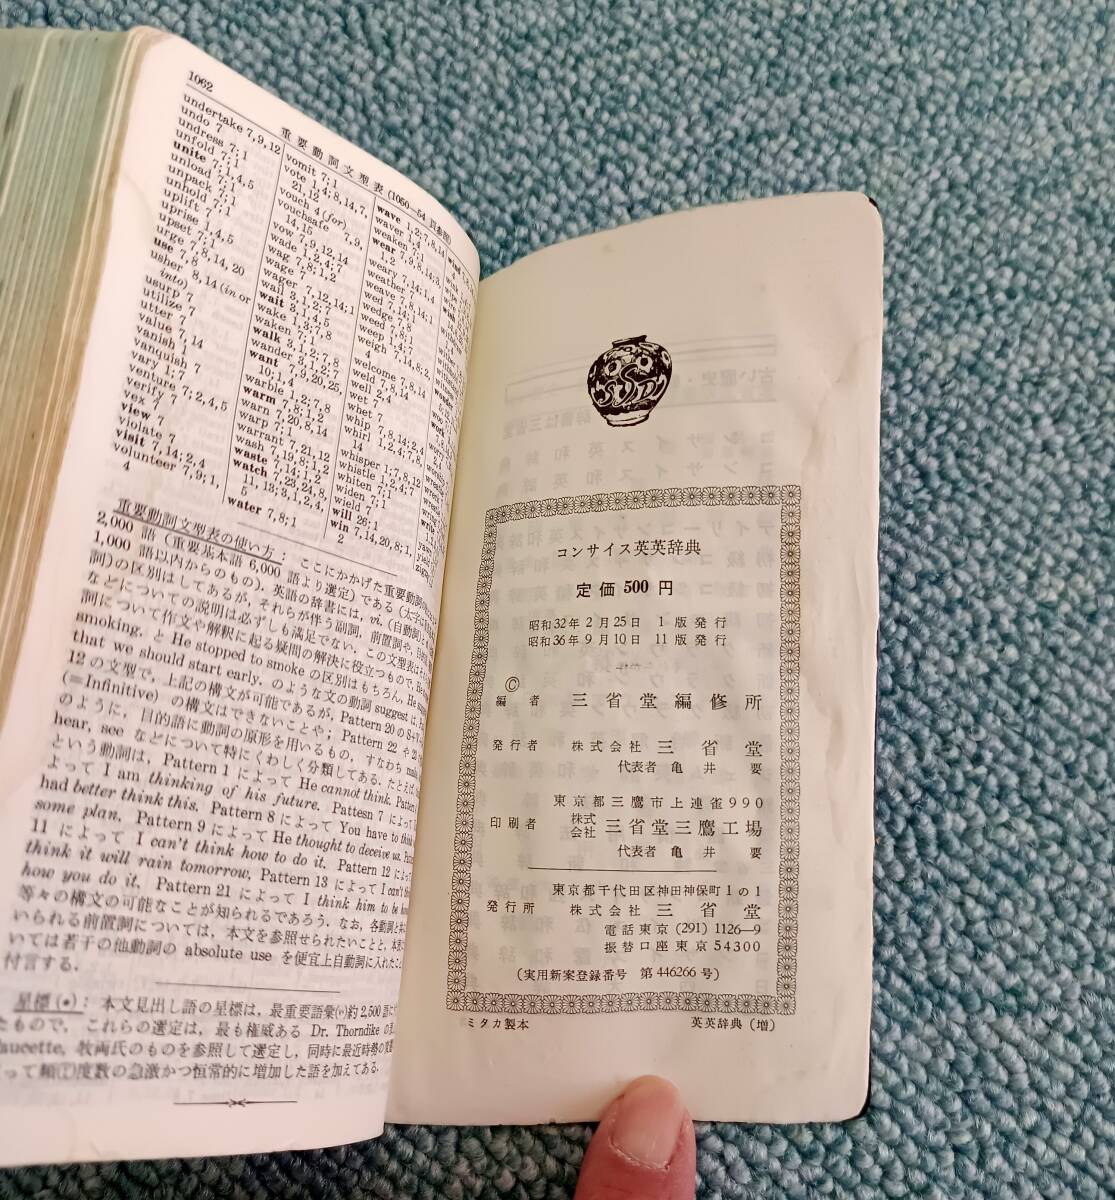 1062
重要動詞文型表(1050—54 頁参照)
undertake 7, 9, 12
undo 7
undress 7; 1
unfold 7; 1
unite 7; 1, 4, 5
unload 7; 1
unpack 7; 1
unhold 7; 1
uplift 7
uprise 1, 4, 5
upset 7; 1
urge 7, 8, 14, 20
use 7, 8
usher 8, 14 (in or
into)
usurp 7
utilize 7
utter 7
value 7, 14
vanish 1
vanquish 7
vary 1; 7
venture 7; 2, 4, 5
verify 7
vex 7
view 7
violate 7
visit 7, 14; 2, 4
volunteer 7, 9; 1,
4
vomit 7; 1
vote 1, 4; 8, 14, 7,
21, 12
vouch 4 (for)
vouchsafe 7, 9,
14, 15
vow 7, 9, 12, 14
wade 1, 2; 4, 7
wag 7, 8; 1, 2
wage 7
wager 7, 12, 14; 1
wail 3, 1, 2; 7
wait 3; 1, 4, 5
wake 1, 3; 7, 8
waken 7; 1
walk 3, 1; 2; 7, 8
wander 3, 1, 2; 7
want 7, 9, 20, 25,
10; 1, 4
warble 1, 2; 7, 8
warm 7, 8; 1, 2
warn 7, 20, 8, 14
warp 7; 1
warrant 7, 21, 12
wash 7, 19, 8; 1, 2
waste 7, 14; 1, 2
watch 7, 23, 24, 8,
11, 13; 3, 1, 2, 4,
5
water 7, 8; 1
wave 1, 2; 7, 8, 14
waver 1, 4
weaken 7; 1
wear 7, 6, 8, 14; 3,
1, 2
weary 7, 14; 1, 4
weather 7, 1
weave 7, 8, 14; 1
wed 7, 14; 1
wedge 7, 8
weed 7, 8; 1
weep 1, 4; 7
weigh 7, 14, 8; 2,
4
welcome 7, 8, 14
weld 7, 8, 14
well 2, 4
wet 7
whet 7
whip 7, 8, 14; 2, 4
whirl 1, 2, 4; 7, 8,
14
whisper 1; 7, 8, 12
whistle 1, 2, 4; 7
whiten 7; 1
widen 7; 1
wield 7
will 26; 1
win 7, 14, 20, 8; 1,
2
重要動詞文型表の使い方: ここにかかげた重要動詞
2,000 語 (重要基本語 6,000 語より選定) である (太字は
1,000 語以内からのもの). 英語の辞書には, vi. (自動詞)
詞)の区別はしてあるが, それらが伴う副詞, 前置詞や, 目的
などについての説明は必ずしも満足でない. この文型表は
詞について作文や解釈に起る疑問の解決に役立つもので,
smoking. と He stopped to smoke の区別はもちろん, He
that we should start early. のような文の動詞 suggest は,
12 の文型で, 上記の構文が可能であるが, Pattern 20 の
(=Infinitive) の構文はできないことや; Pattern 22 や
のように, 目的語に動詞の原形を用いるもの, すなわち
hear, see などについて特にくわしく分類してある. たとえば
という動詞は, Pattern 1 によって He cannot think.
よって I am thinking of his future. Pattesn 7 によって
had better think this. Pattern 8 によって You have to think
some plan. Pattern 9 によって He thought to deceive us.
11 によって I can't think how to do it. Pattern 12 によ
think it will rain tomorrow, Pattern 13 によって I can't
how you do it. Pattern 21 によって I think him to be
等々の構文の可能なことが知られるであろう. なお, 各動詞と
いられる前置詞については, 本文を参照せられたいことと,
いては若干の他動詞の absolute use を便宜上自動詞に入れた
付言する.
星標(•): 本文見出し語の星標は, 最重要語彙(ゐ)約 2,500 語に
たもので, これらの選定は, 最も権威ある Dr. Thorndike
aucette, 牧両氏のものを参照して選定し, 同時に最近時勢の
って頻度数の急激かつ恒常的に増加した語を加えてある.
コンサイス英英辞典
定価 500 円
昭和32年 2 月25日 1 版発行
昭和36年 9 月10日 11 版発行
©
編者 三省堂編修所
発行者 株式会社 三省堂
代表者 亀井要
東京都三鷹市上連雀990
印刷者 株式会社 三省堂三鷹工場
代表者 亀井要
東京都千代田区神田神保町1の1
発行所 株式会社 三省堂
電話東京 (291) 1126—9
振替口座東京 54300
(実用新案登録番号 第 446266 号)
ミタカ製本
英英辞典 (増)